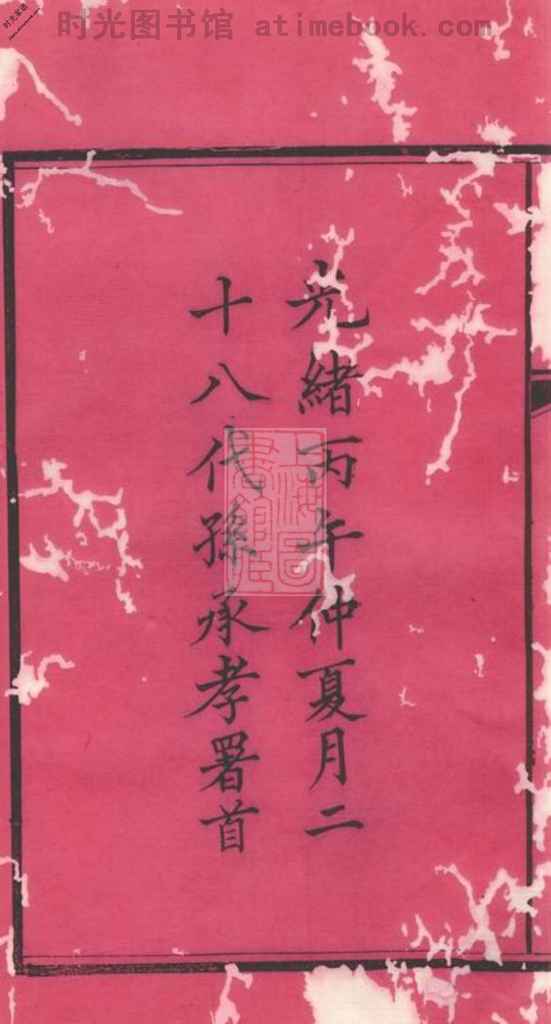 时光图书馆 atimebook.com
光緒丙午仲夏月二
十八代孫承孝署首